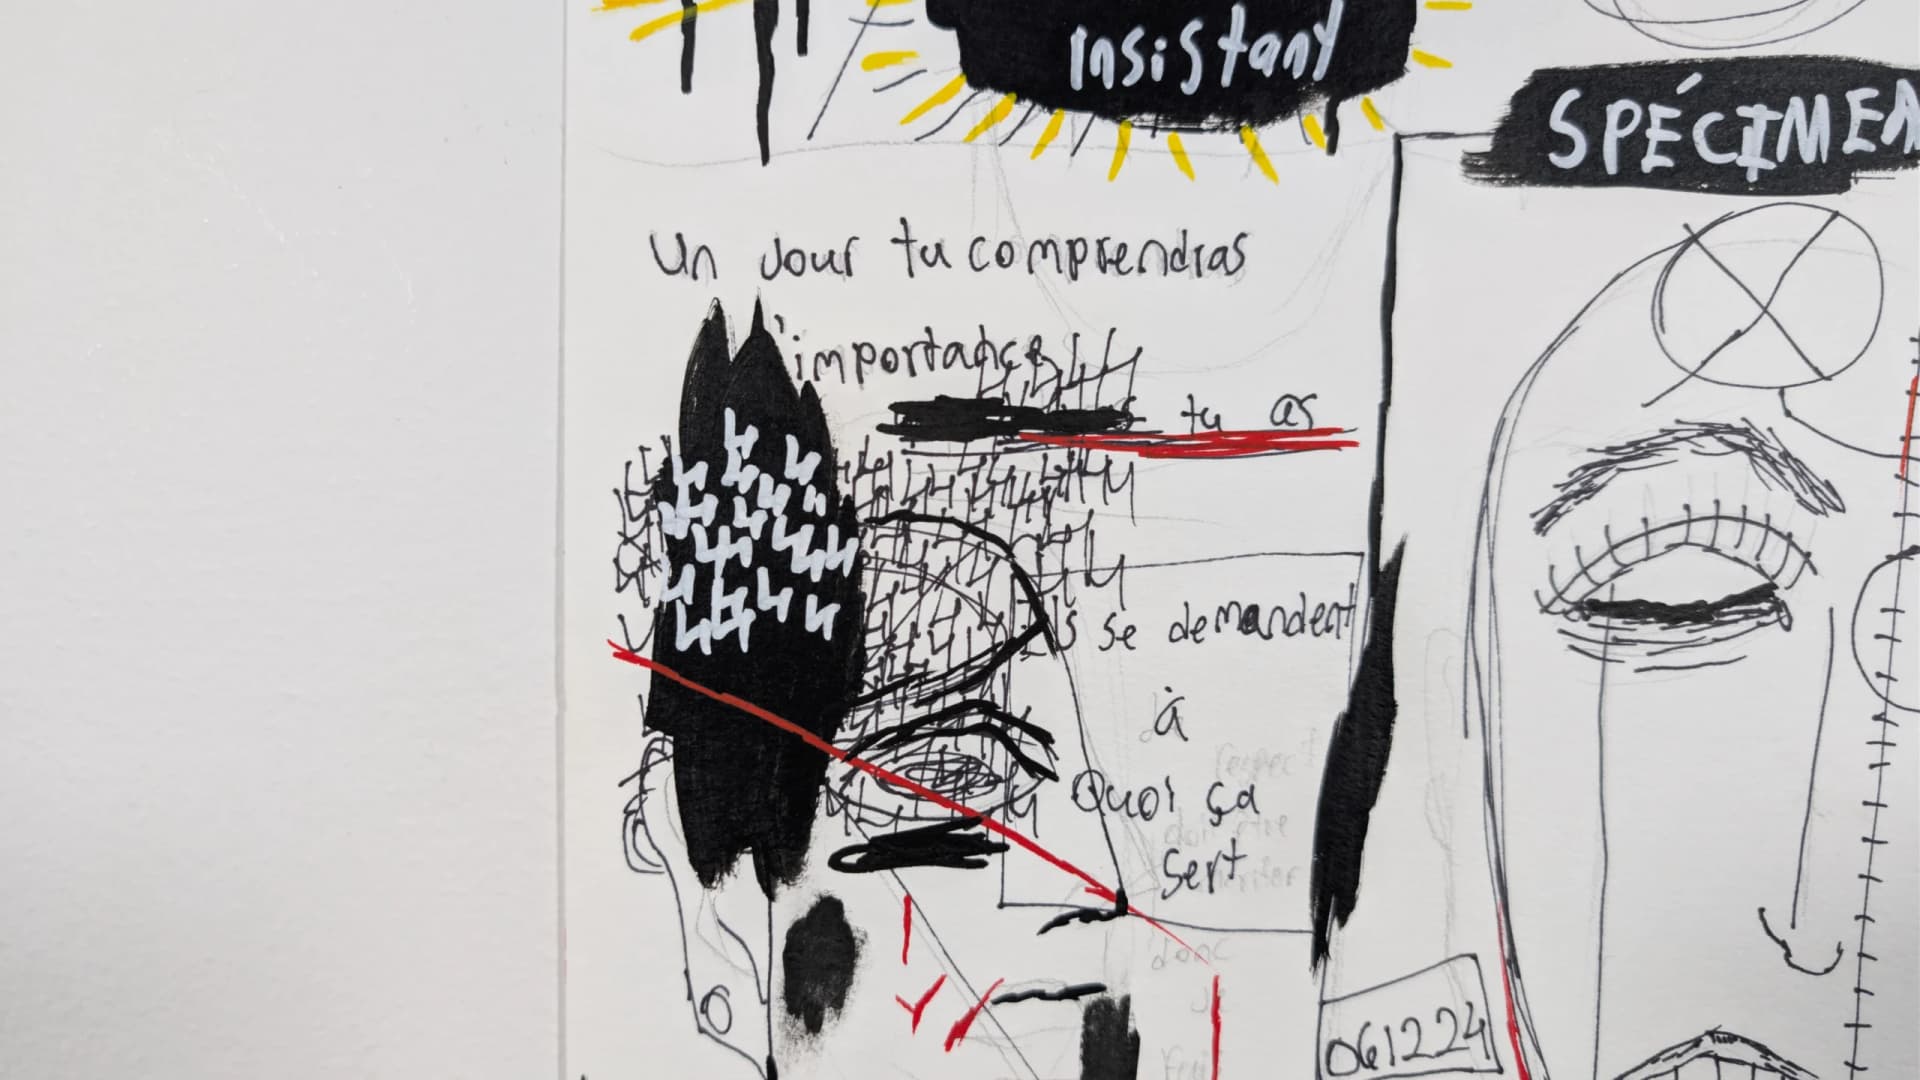 Insistant
SPÉCIMEN
un jour tu comprendras
l'importance
tu as
Ils se demandent
à
Quoi ça
sert
respect
doit être
donc
061224